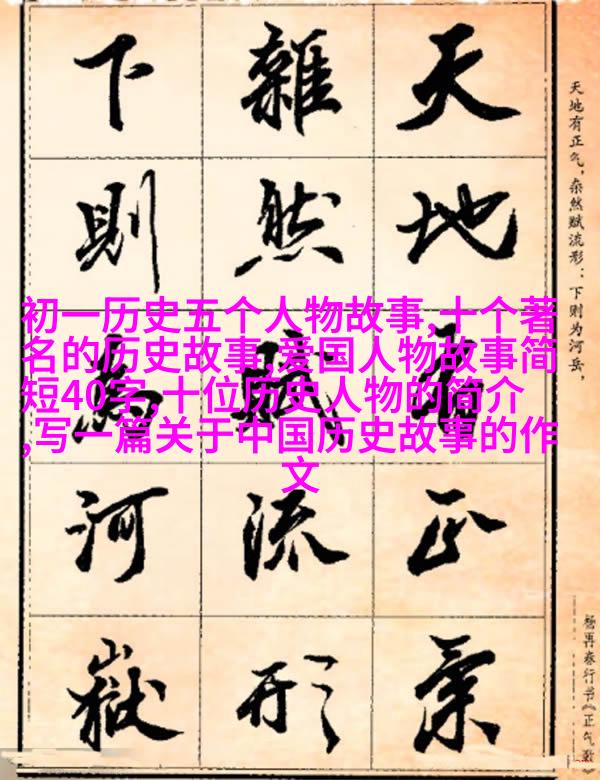 天地有正气，杂然赋流形：下则为河岳，
杨再春行书《正气歌》
天地有正氣
雜然賦流形
下則為河嶽
初一历史五个人物故事,十个著
名的历史故事,爱国人物故事简
短40字,十位历史人物的简介
,写一篇关于中国历史故事的作
文